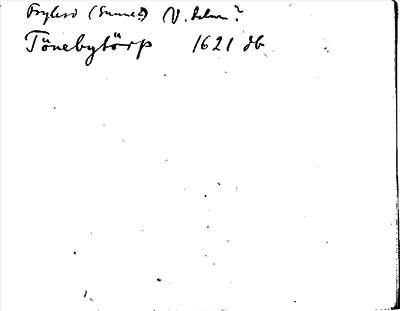 Fryksd (Sunne?) V. delen?
Tönebytörp 1621 db